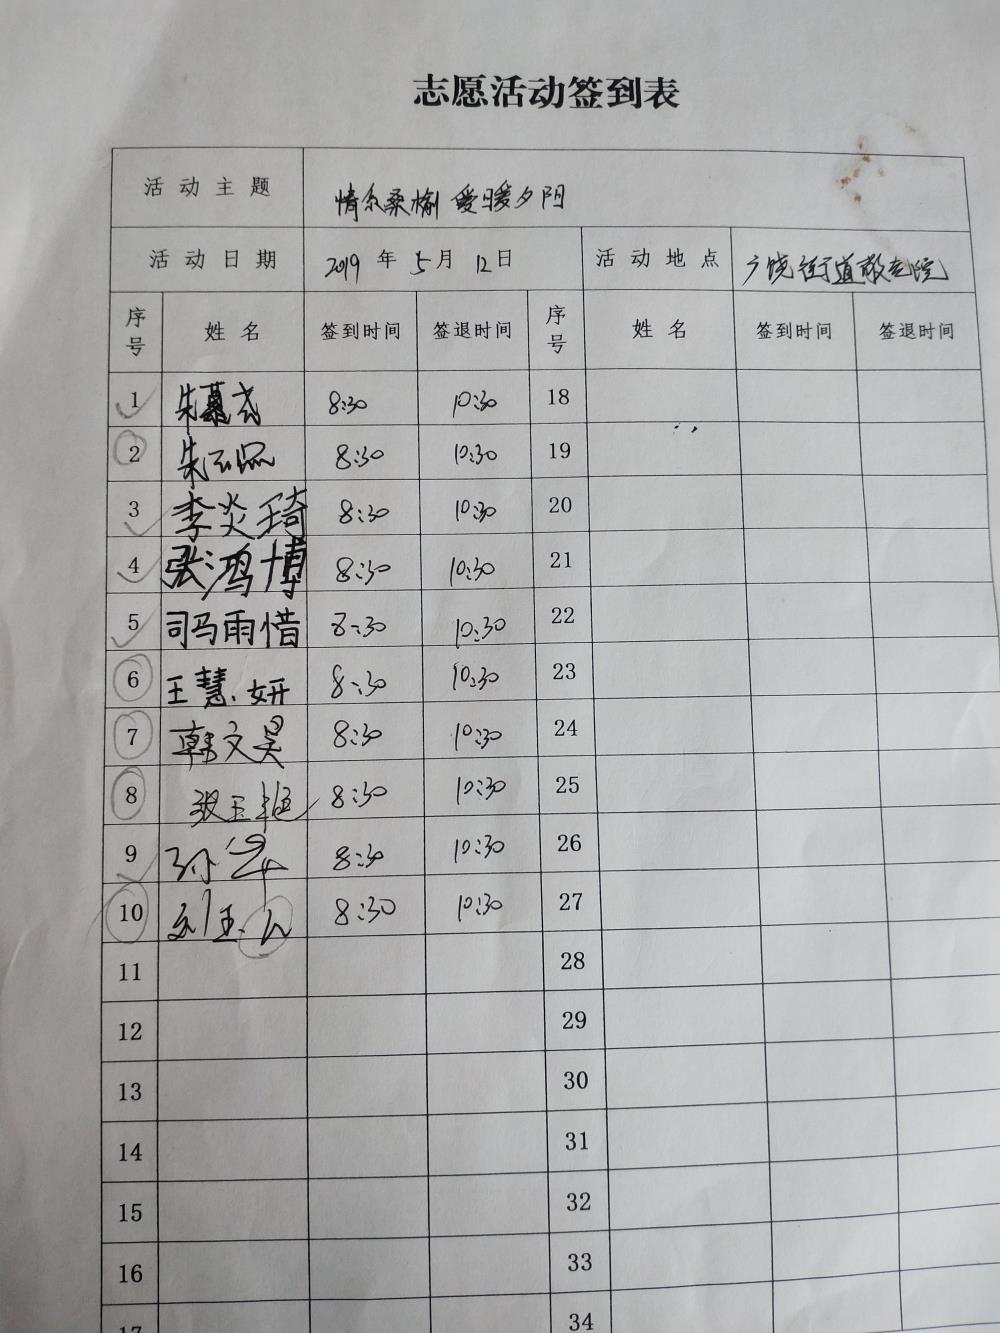 志愿活动签到表
活动主题 情系桑榆 爱暖夕阳
活动日期 2019年5月12日 活动地点 广饶街道敬老院
序号 姓名 签到时间 签退时间 序号 姓名 签到时间 签退时间
1 朱慕 8:30 10:30 18
2 朱 8:30 10:30 19
3 李炎琦 8:30 10:30 20
4 张鸿博 8:30 10:30 21
5 司马雨惜 8:30 10:30 22
6 王慧妍 8:30 10:30 23
7 韩文昊 8:30 10:30 24
8 张玉 8:30 10:30 25
9 孙 8:30 10:30 26
10 刘玉 8:30 10:30 27
11 28
12 29
13 30
14 31
15 32
16 33
17 34